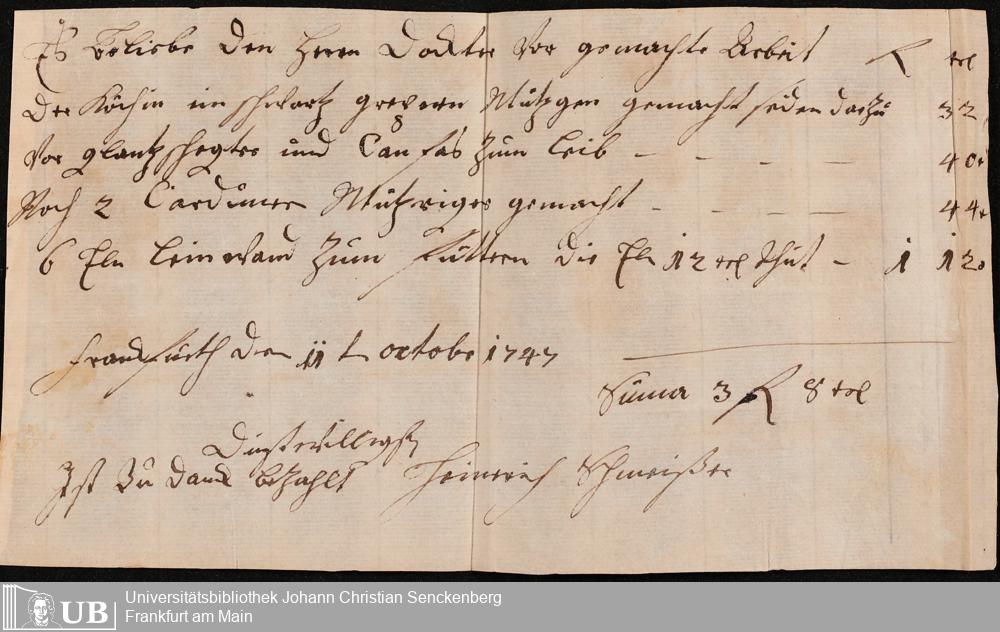 Es beliebe den Herrn Dockter vor gemachte Arbeit
Der Köchin ein schwartz Mützgen gemacht seiden darzu 32
vor und Canfas zum leib - - - - 40
Noch 2 gemacht - - - - 44
6 Eln leinwand zum futtern die Eln 12 thut - 1 12
Franckfurth den 11 t octobr 1747
Suma 3 8
Dinstwilligst
Ist zu danck bezahlt Heinrich Schmeißer
UB
Universitätsbibliothek Johann Christian Senckenberg
Frankfurt am Main